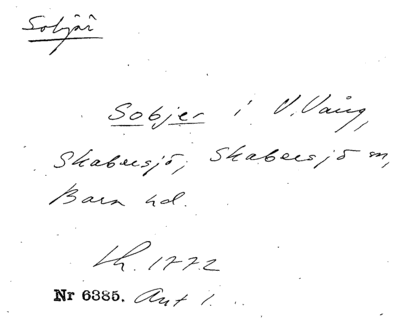 Sobjär
Sobjer i V. Vång,
Skabersjö, Skabersjö sn,
Bara hd.
Lh. 1772
Nr 6385. Akt 1.